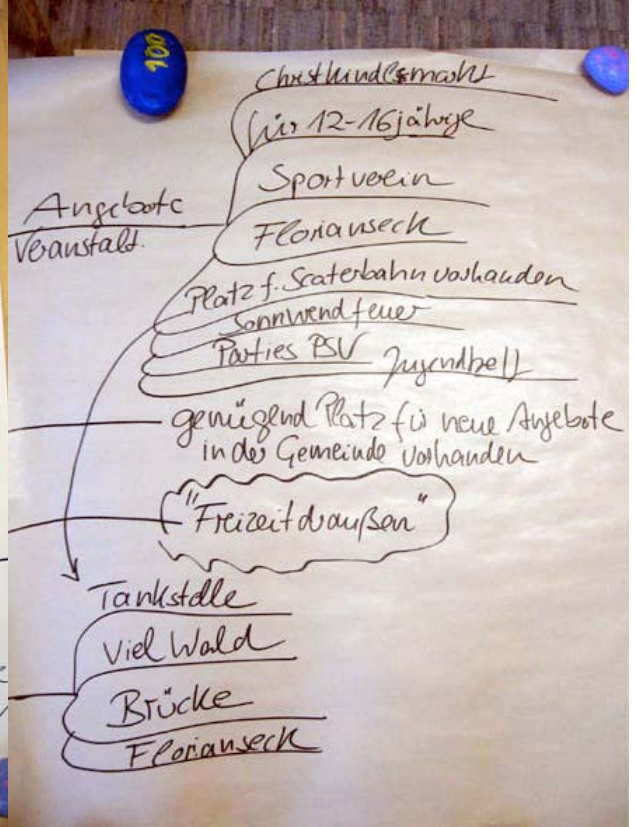 100
Christkindlesmarkt
für 12-16jährige
Sportverein
Angebote
Veranstalt.
Florianseck
Platz f. Scaterbahn vorhanden
Sonnwendfeuer
Parties PSV Jugendball
genügend Platz für neue Angebote
in der Gemeinde vorhanden
"Freizeit draußen"
Tankstelle
Viel Wald
Brücke
Florianseck